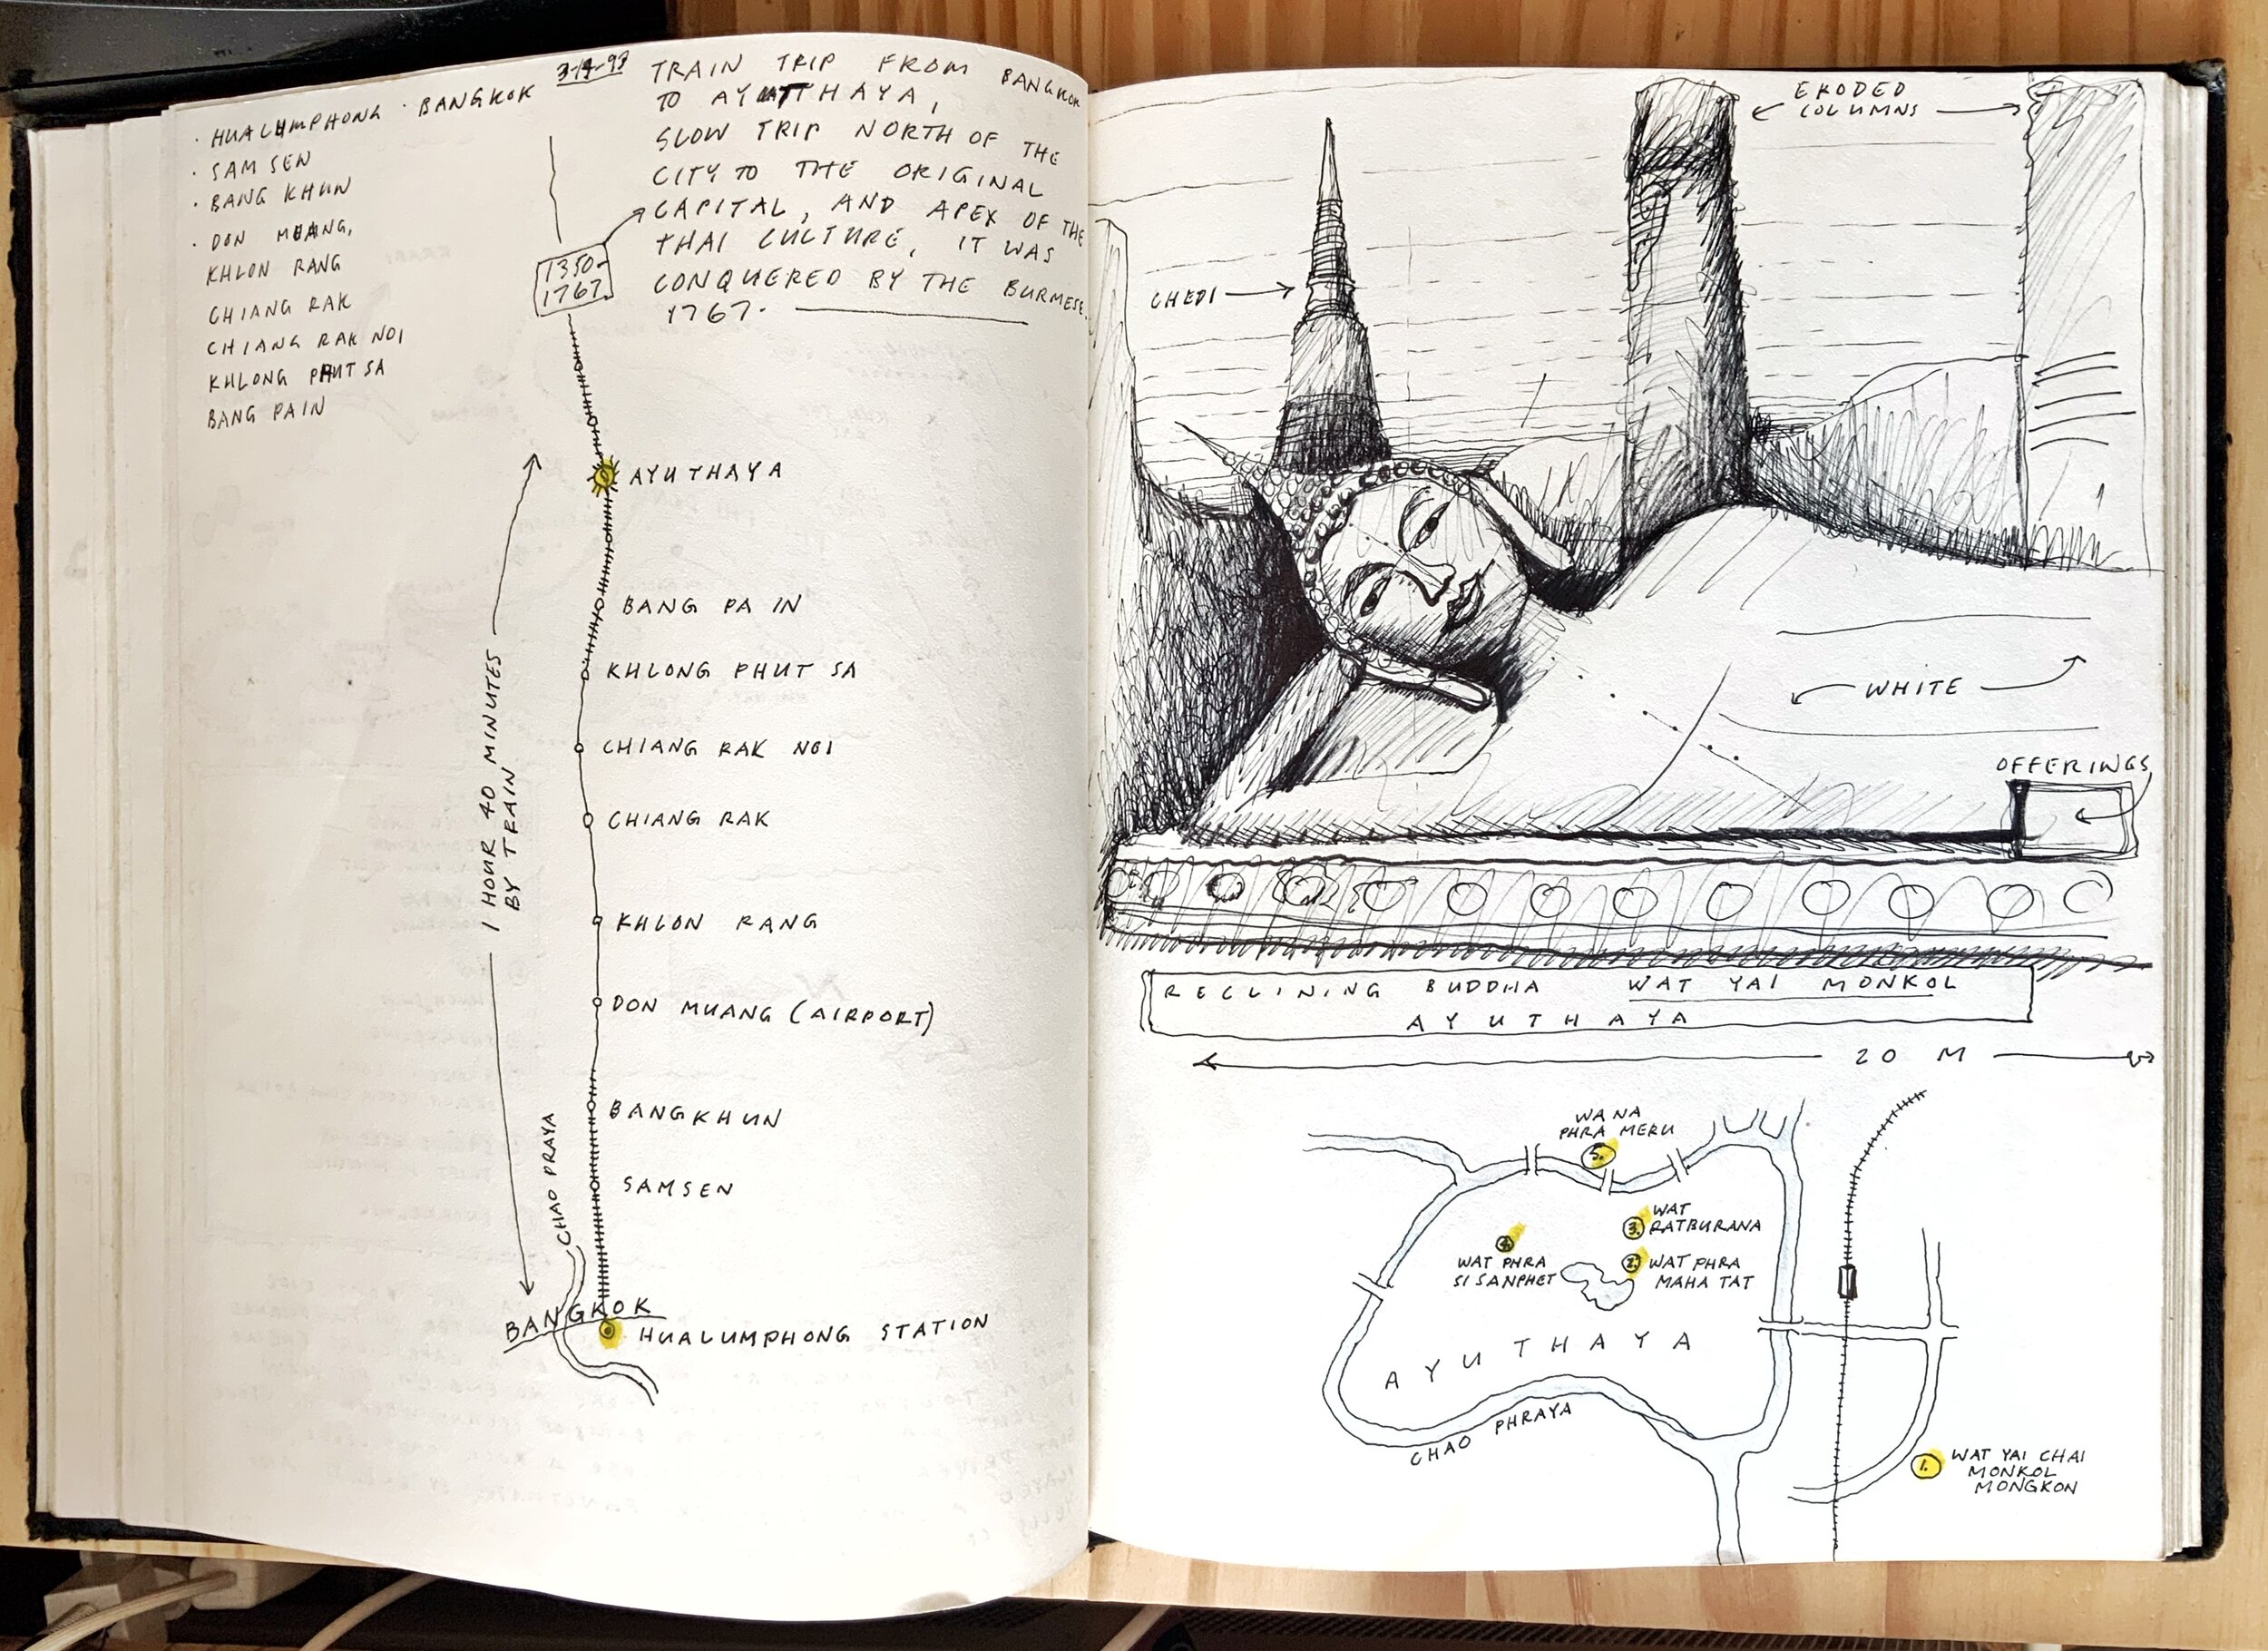 3-14-93
· HUALUMPHONG · BANGKOK
· SAM SEN
· BANG KHUN
· DON MUANG,
KHLON RANG
CHIANG RAK
CHIANG RAK NOI
KHLONG PHUT SA
BANG PAIN
TRAIN TRIP FROM BANGKOK
TO AYUTTHAYA,
SLOW TRIP NORTH OF THE
CITY TO THE ORIGINAL
CAPITAL, AND APEX OF THE
THAI CULTURE, IT WAS
CONQUERED BY THE BURMESE.
1767.
1350-
1767
AYUTHAYA
BANG PA IN
KHLONG PHUT SA
CHIANG RAK NOI
CHIANG RAK
KHLON RANG
DON MUANG (AIRPORT)
BANGKHUN
SAMSEN
1 HOUR 40 MINUTES
BY TRAIN
CHAO PRAYA
BANGKOK
HUALUMPHONG STATION
ERODED
COLUMNS
CHEDI
WHITE
OFFERINGS
RECLINING BUDDHA WAT YAI MONKOL
AYUTHAYA
20 M
WA NA
PHRA MERU
5.
WAT
3. RATBURANA
4
WAT PHRA
SI SANPHET
2. WAT PHRA
MAHA TAT
AYUTHAYA
CHAO PHRAYA
1. WAT YAI CHAI
MONKOL
MONGKON